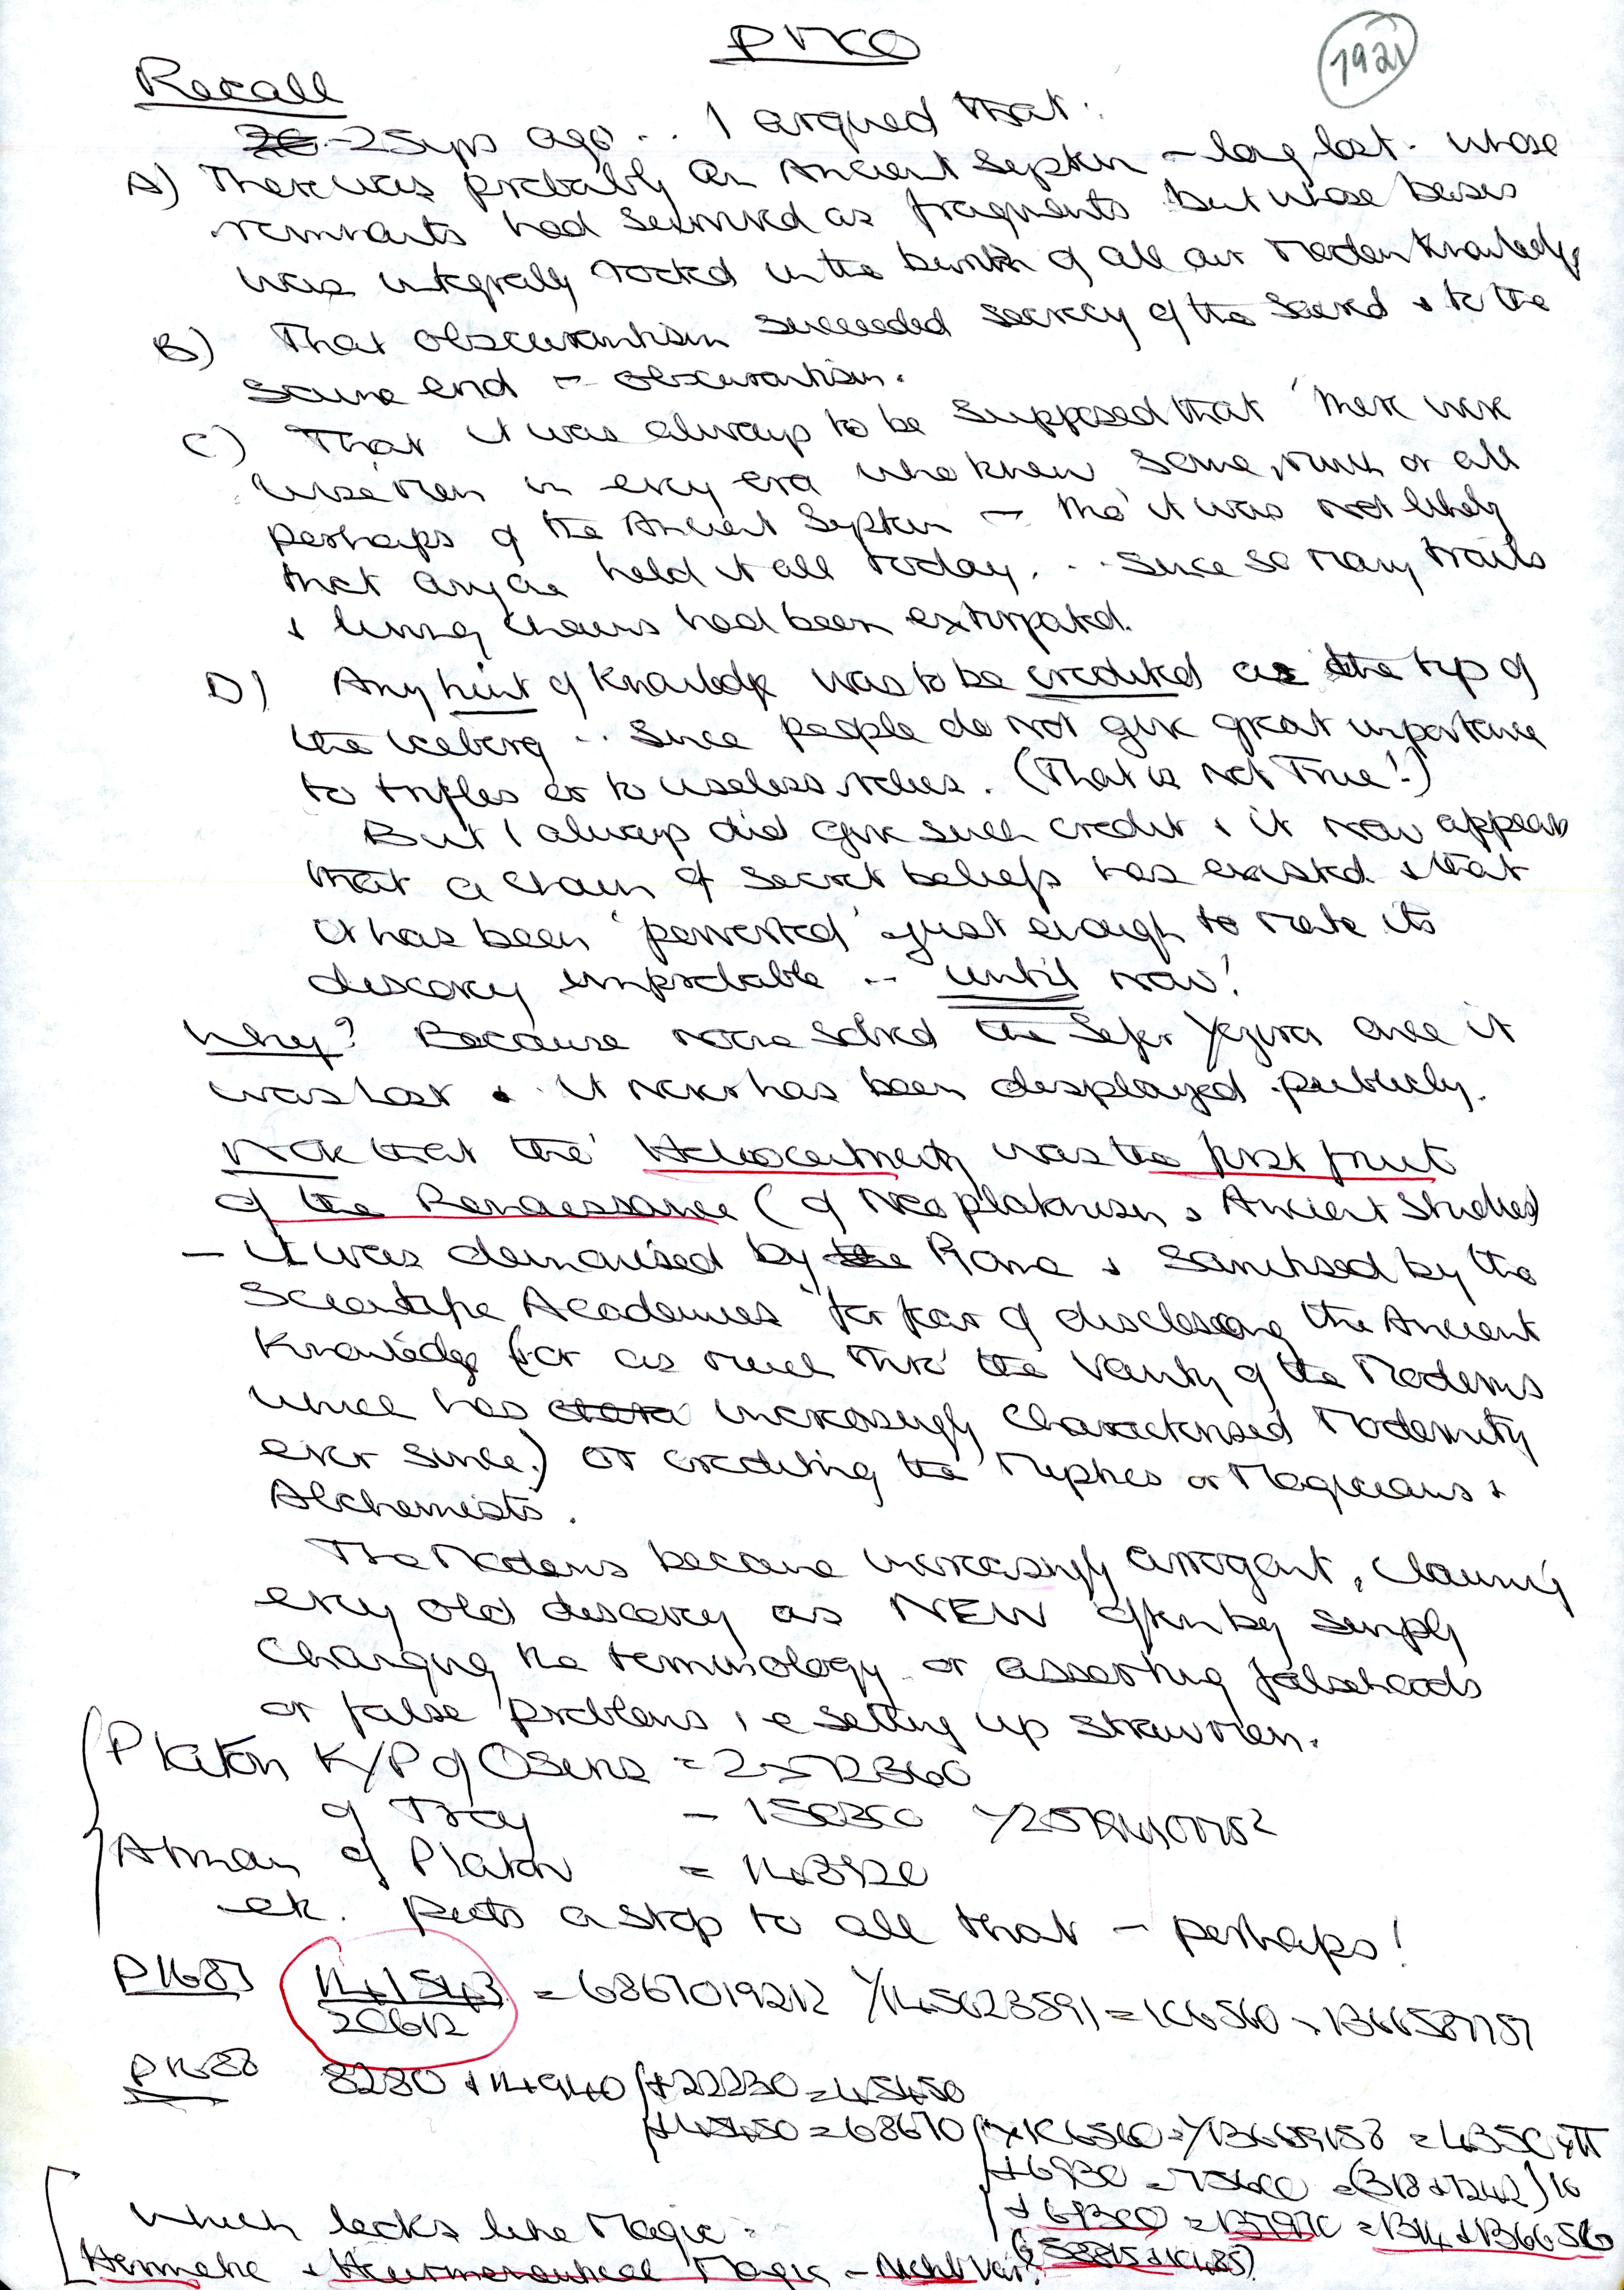 PICO
1921
Recall
25 yrs ago... I argued that:
A) There was probably an Ancient System – long lost. whose
remnants had survived as fragments but whose basis
was integrally rooted in the birth of all our Modern Knowledge
B) That obscurantism succeeded secrecy of the sacred & to the
same end – obscurantism.
C) That it was always to be supposed that there were
wise men in every era who knew some, much or all
perhaps of the Ancient System – tho' it was not likely
that anyone held it all today... since so many trails
& living chains had been extirpated.
D) Any hint of Knowledge was to be credited as the tip of
the iceberg.. since people do not give great importance
to trifles or to useless relics. (That is not True!)
But I always did give such credit & it now appears
that a chain of secret beliefs has existed & that
it has been 'perverted' just enough to make its
discovery improbable -- until now!
Why? Because none solved the Sefer Yezira once it
was lost & it never has been displayed publicly.
Note that the Heliocentricity was the first fruit
of the Renaissance (of Neoplatonism & Ancient Studies)
– it was demonised by the Rome & sanitised by the
Scientific Academies for fear of disclosing the Ancient
Knowledge (or as much thro' the Vanity of the Moderns
which has increasingly characterised Modernity
ever since.) or crediting the Mystics or Magicians &
Alchemists.
The Moderns became increasingly arrogant, claiming
every old discovery as NEW often by simply
changing the terminology or asserting falsehoods
or false problems, i.e setting up strawmen.
Platon K/P of Osiris = 2572360
of Troy – 150300
Atman of Platon = 143920
etc. puts a stop to all that – perhaps!
P1687 141543/20612 = 6867019212 √145623591 = 106560
P1688 8280 + 14940 + 22230 = 45450
+ 45450 = 68670
+ 6930 = 75600 = (318 + 7242) 10
Which looks like Magic:
Hermetic & Hermeneutical Magic – Nicht Var?